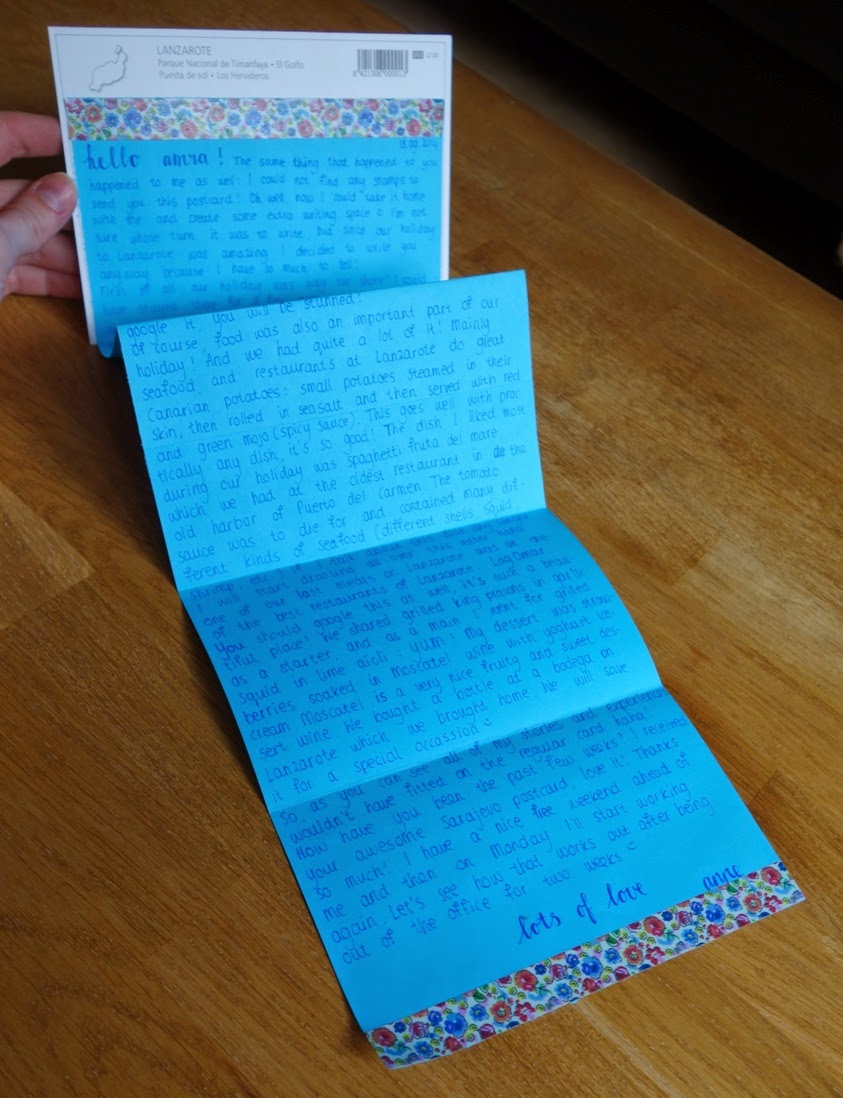 LANZAROTE
Parque Nacional de Timanfaya • El Golfo
Puesta de sol • Los Hervideros
hello amra! The same thing that happened to you
happened to me as well: I could not find any stamps to
send you this postcard! Oh well, now I could take it home
with me and create some extra writing space I'm not
sure whose turn it was to write but since our holiday
to Lanzarote was amazing I decided to write you
anyway because I have so much to tell!
First of all, our holiday was way too short! I could
google it, you will be stunned!
Of course, food was also an important part of our
holiday! And we had quite a lot of it! Mainly
seafood, and restaurants at Lanzarote do great
Canarian potatoes: small potatoes steamed in their
skin, then rolled in seasalt and then served with red
and green mojo (spicy sauce). This goes well with prac-
tically any dish, it's so good! The dish I liked most
during our holiday was spaghetti fruta del mare,
which we had at the oldest restaurant in the
old harbor of Puerto del Carmen. The tomato
sauce was to die for and contained many dif-
ferent kinds of seafood (different shells, squid
shrimp, etc.)
I will start drooling all over this letter haha
one of our last meals on Lanzarote was at one
of the best restaurants of Lanzarote: LagOmar
You should google this as well, it's such a beau-
tiful place! We shared grilled king prawns in garlic
as a starter, and as a main I went for grilled
squid in lime aioli: yum! My dessert was straw-
berries soaked in Moscatel wine with yoghurt ice-
cream. Moscatel is a very nice fruity and sweet des-
sert wine. We bought a bottle at a bodega on
Lanzarote which we brought home. We will save
it for a special occassion
So, as you can see all of my stories and experiences
wouldn't have fitted on the regular card haha!
How have you been the past few weeks? I received
your awesome Sarajevo postcard, love it! Thanks
so much! I have a nice free weekend ahead of
me and then on Monday I'll start working
again. Let's see how that works out after being
out of the office for two weeks
lots of love
anne